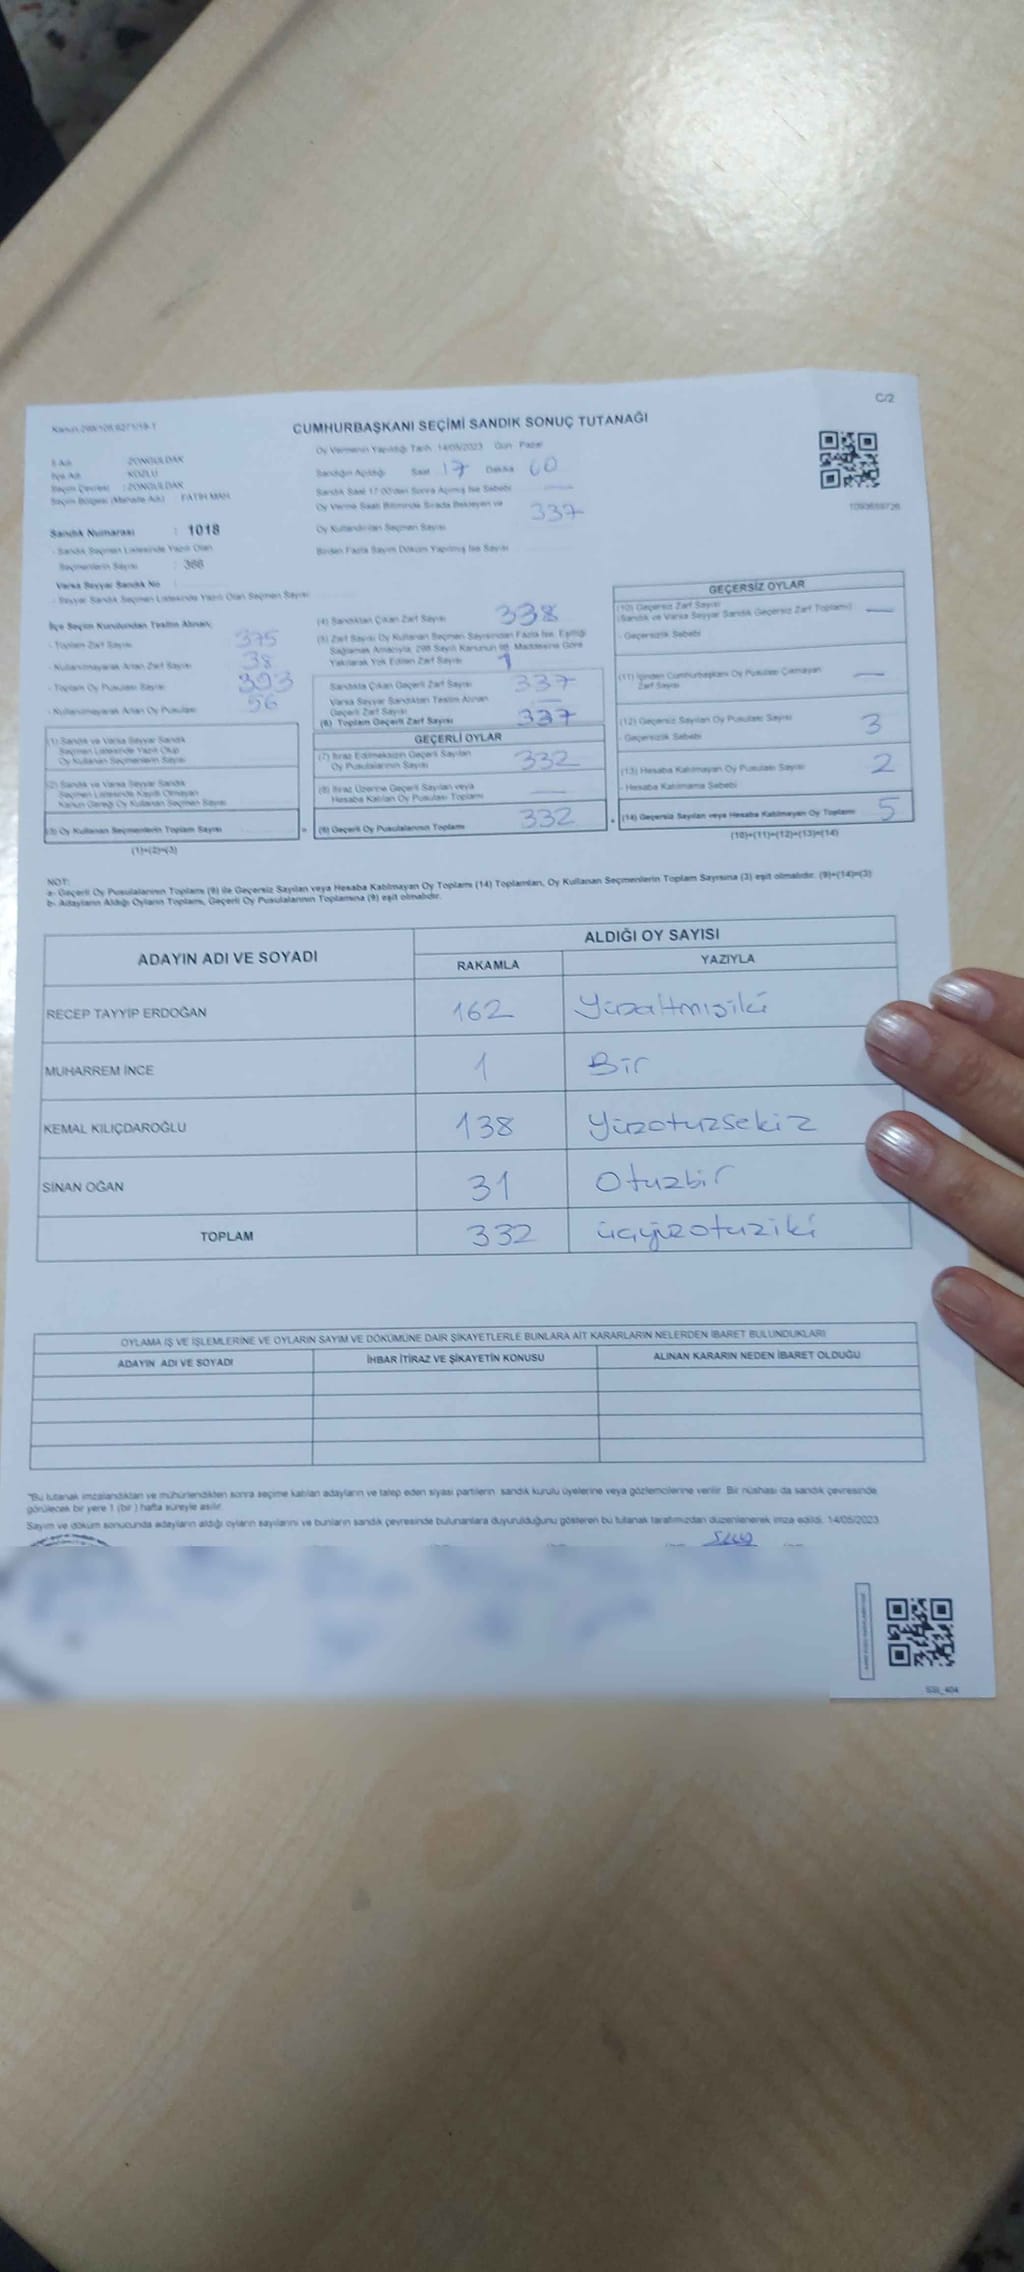 C/2
CUMHURBAŞKANI SEÇİMİ SANDIK SONUÇ TUTANAĞI
İl Adı : ZONGULDAK
İlçe Adı : KOZLU
Seçim Çevresi : ZONGULDAK
Seçim Bölgesi (Mahalle Adı) : FATİH MAH.
Oy Vermenin Yapıldığı Tarih : 14/05/2023 Gün : Pazar
Sandığın Açıldığı Saat 17 Dakika 00
Sandık Saat 17.00'den Sonra Açılmış İse Sebebi —
Oy Verme Saati Bitiminde Sırada Bekleyen ve
Oy Kullandırılan Seçmen Sayısı 337
Birden Fazla Sayım Döküm Yapılmış İse Sayısı
1093659726
Sandık Numarası : 1018
- Sandık Seçmen Listesinde Yazılı Olan
Seçmenlerin Sayısı : 366
Varsa Seyyar Sandık No
- Seyyar Sandık Seçmen Listesinde Yazılı Olan Seçmen Sayısı
İlçe Seçim Kurulundan Teslim Alınan;
- Toplam Zarf Sayısı 375
- Kullanılmayarak Artan Zarf Sayısı 38
- Toplam Oy Pusulası Sayısı 393
- Kullanılmayarak Artan Oy Pusulası 56
(1) Sandık ve Varsa Seyyar Sandık
Seçmen Listesinde Yazılı Olup
Oy Kullanan Seçmenlerin Sayısı
(2) Sandık ve Varsa Seyyar Sandık
Seçmen Listesinde Kaydı Olmayan
Kanun Gereği Oy Kullanan Seçmen Sayısı
(3) Oy Kullanan Seçmenlerin Toplam Sayısı
(1)+(2)=(3)
(4) Sandıktan Çıkan Zarf Sayısı 338
(5) Zarf Sayısı Oy Kullanan Seçmen Sayısından Fazla İse, Eşitliği
Sağlamak Amacıyla, 298 Sayılı Kanunun 98. Maddesine Göre
Yakılarak Yok Edilen Zarf Sayısı 1
Sandıkta Çıkan Geçerli Zarf Sayısı 337
Varsa Seyyar Sandıktan Teslim Alınan
Geçerli Zarf Sayısı —
(6) Toplam Geçerli Zarf Sayısı 337
GEÇERLİ OYLAR
(7) İtiraz Edilmeksizin Geçerli Sayılan
Oy Pusulalarının Sayısı 332
(8) İtiraz Üzerine Geçerli Sayılan veya
Hesaba Katılan Oy Pusulası Toplamı —
(9) Geçerli Oy Pusulalarının Toplamı 332
GEÇERSİZ OYLAR
(10) Geçersiz Zarf Sayısı
(Sandık ve Varsa Seyyar Sandık Geçersiz Zarf Toplamı) —
- Geçersizlik Sebebi
(11) İçinden Cumhurbaşkanı Oy Pusulası Çıkmayan
Zarf Sayısı —
(12) Geçersiz Sayılan Oy Pusulası Sayısı 3
- Geçersizlik Sebebi
(13) Hesaba Katılmayan Oy Pusulası Sayısı 2
- Hesaba Katılmama Sebebi
(14) Geçersiz Sayılan veya Hesaba Katılmayan Oy Toplamı 5
(10)+(11)+(12)+(13)=(14)
NOT:
a- Geçerli Oy Pusulalarının Toplamı (9) ile Geçersiz Sayılan veya Hesaba Katılmayan Oy Toplamı (14) Toplamları, Oy Kullanan Seçmenlerin Toplam Sayısına (3) eşit olmalıdır. (9)+(14)=(3)
b- Adayların Aldığı Oyların Toplamı, Geçerli Oy Pusulalarının Toplamına (9) eşit olmalıdır.
ADAYIN ADI VE SOYADI ALDIĞI OY SAYISI
RAKAMLA YAZIYLA
RECEP TAYYİP ERDOĞAN 162 Yüzaltmışiki
MUHARREM İNCE 1 Bir
KEMAL KILIÇDAROĞLU 138 Yüzotuzsekiz
SİNAN OĞAN 31 Otuzbir
TOPLAM 332 üçyüzotuziki
OYLAMA İŞ VE İŞLEMLERİNE VE OYLARIN SAYIM VE DÖKÜMÜNE DAİR ŞİKAYETLERLE BUNLARA AİT KARARLARIN NELERDEN İBARET BULUNDUKLARI
ADAYIN ADI VE SOYADI İHBAR İTİRAZ VE ŞİKAYETİN KONUSU ALINAN KARARIN NEDEN İBARET OLDUĞU
"Bu tutanak imzalandıktan ve mühürlendikten sonra seçime katılan adayların ve talep eden siyasi partilerin sandık kurulu üyelerine veya gözlemcilerine verilir. Bir nüshası da sandık çevresinde
görülecek bir yere 1 (bir ) hafta süreyle asılır.
Sayım ve döküm sonucunda adayların aldığı oyların sayılarını ve bunların sandık çevresinde bulunanlara duyurulduğunu gösteren bu tutanak tarafımızdan düzenlenerek imza edildi. 14/05/2023
SSI_404